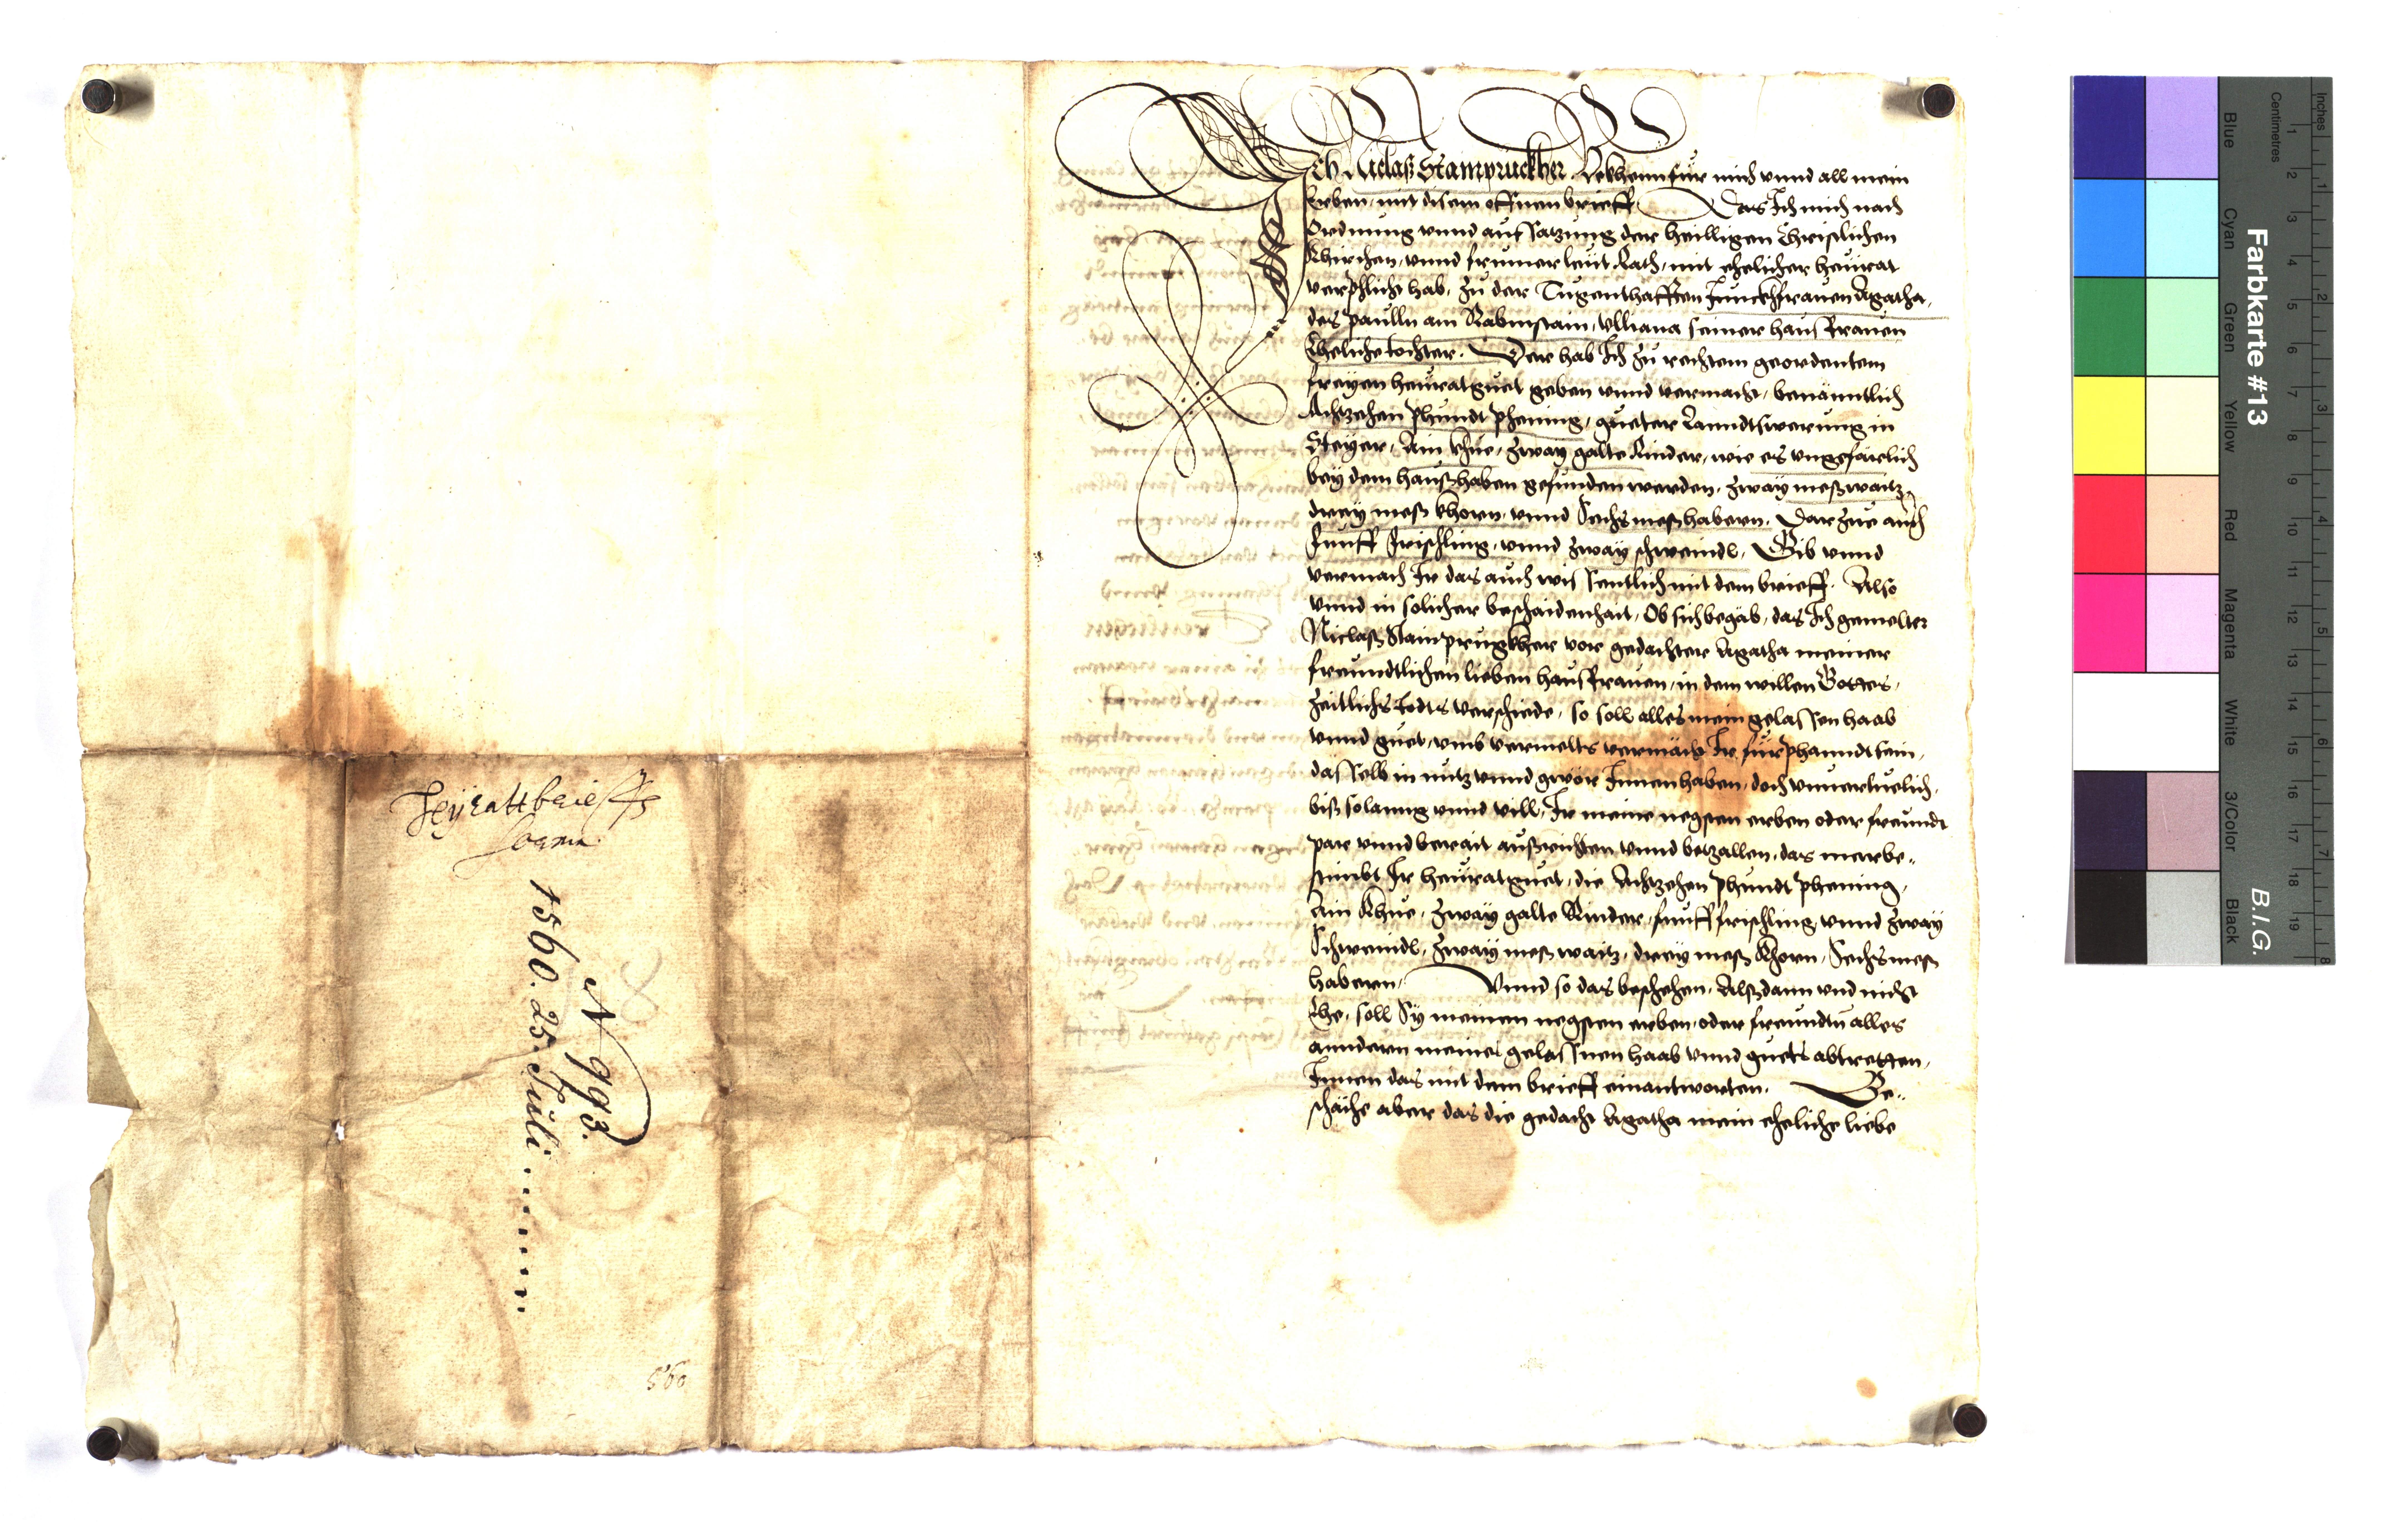 Heyratt brieff
1560. 25. Juli
N 993.
560
Ich Niclaß Stainpruckher Bekhenn für mich vnnd all mein
Erben, mit disem offnen brieff. Das Ich mich nach
Ordnung vnnd aufsatzung der heilligen Christlichen
Khirchen, vnnd frumer leüt Rath, mit ehelicher heürat
verphlicht hab, zu der Tugenthafften Junckhfrauen Agatha,
des paulln am Rabmstain, Ulliana seiner hausfrauen
Eheliche tochter. Der hab Ich zu rechtem geordentem
freyen heüratguet geben vnnd vermacht, benänntlich
Achtzehen phundt phening, gueter Lanndtswerung in
Steyer, Ain khue, zway galte Rinder, wie es vngefärlich
bey dem haußhaben gefunden werden, zway mesz waitz,
dreÿ mesz khorn, vnnd Sechs mesz habern. Darzue auch
Funff Frischling, vnnd zway schweindl. Gib vnnd
vermach Ir das auch wissentlich mit dem brieff. Also
vnnd in solicher beschaidenhait, Ob sich begab, das Ich gemelter
Niclaß Stainprugkher vor gedachter Agatha meiner
freundtlichen lieben hausfrauen, in dem willen Gottes,
zeitlichs todts verschiede, so soll alles mein gelassen haab
vnnd guet, vmb vermelts vermächt Ir fürphanndt sein,
dasselb in nutz vnnd gwör Innen haben, doch vnuerthuelich,
biß solanng vnnd vill, Ir meine negsten erben oder freundt
par vnnd berait außrichten vnnd betzallen, das merbe-
stimbt Ir heüratguet, die Achtzehen phundt phening,
Ain Khue, zway galte Rinder, funff frischling, vnnd zway
Schweindl, zway mesz waitz, dreÿ mesz Khorn, Sechs mesz
habern. Vnnd so das beschehen, Alßdann vnd nicht
Ehe, soll Sy meinen negsten erben, oder freundtn alles
anndern meines gelassnen haab vnnd guets abtretten,
Innen das mit dem brieff einantworten. Ge-
schäche aber das die gedacht Agatha mein eheliche liebe
Farbkarte #13
B.I.G.
Inches
Centimetres
Blue
Cyan
Green
Yellow
Red
Magenta
White
3/Color
Black
1 2 3 4 5 6 7 8 9 10 11 12 13 14 15 16 17 18 19
1 2 3 4 5 6 7 8